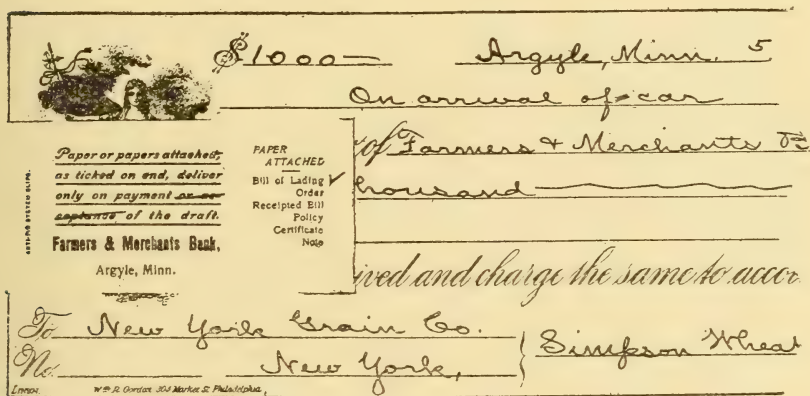 $1000— Argyle, Minn. 5
On arrival of car
of Farmers & Merchants
housand
ived and charge the same to accor
Paper or papers attached,
as ticked on end, deliver
only on payment or ac-
ceptance of the draft.
Farmers & Merchants Bank,
Argyle, Minn.
PAPER
ATTACHED
Bill of Lading ✓
Order
Receipted Bill
Policy
Certificate
Note
To New York Grain Co.
No. New York,
Simpson Wheat
Wm R. Gordon, 303 Market St. Philadelphia,